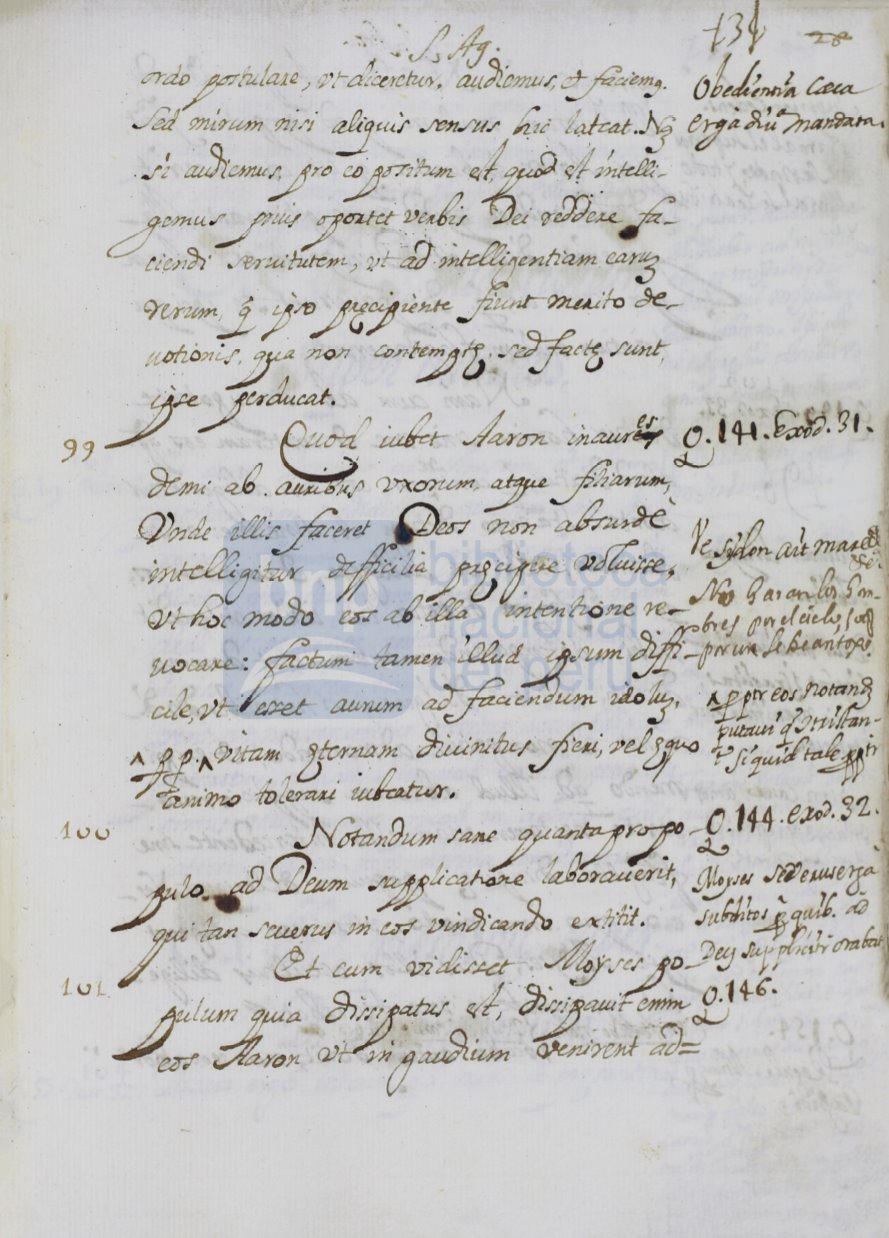 131 28
S. Ag.
ordo postulare, vt diceretur, audiemus, et faciemꝰ.
Sed mirum nisi aliquis sensus hic lateat. Nā
si audiemus, pro eo positum est, quod est intelli-
gemus prius oportet verbis Dei reddere fa-
ciendi seruitutem, vt ad intelligentiam earuȝ
rerum, q̄ ipso pręcipiente fiunt merito de-
uotionis, qua non contemptę, sed factę sunt,
ipse perducat.
Obedientia Cæca
erga diuᵃ mandata.
99 Quod iubet Aaron inaures
demi ab auribus vxorum, atque filiarum,
Vnde illis faceret Deos non absurdè
intelligitur difficilia pręcipere voluisse,
vt hoc modo eos ab illa intentione re-
uocare: factum tamen illud ipsum diffi-
cile, vt esset aurum ad faciendum idoluȝ,
^ pp. ^ vitam ęternam diuinitus fieri, vel ęquo
animo tolerari iubeatur.
Q. 141. Exod. 31.
No haran los hom-
bres por el cielo, lo q̄
por vn
^ pptr eos notandȝ
putaui
si quid tale pptr
100 Notandum sane quanta pro po-
pulo ad Deum supplicatione laborauerit,
qui tan seuerus in eos vindicando extitit.
Q. 144. Exod. 32.
Moyses seuerus erga
subditos p̄ quib. ad
Deȝ suppliciter orabat
101 Et cum vidisset Moyses po-
pulum quia dissipatus est, dissipauit enim
eos Aaron vt in gaudium venirent ad=
Q. 146.
bnp biblioteca
nacional
del perú